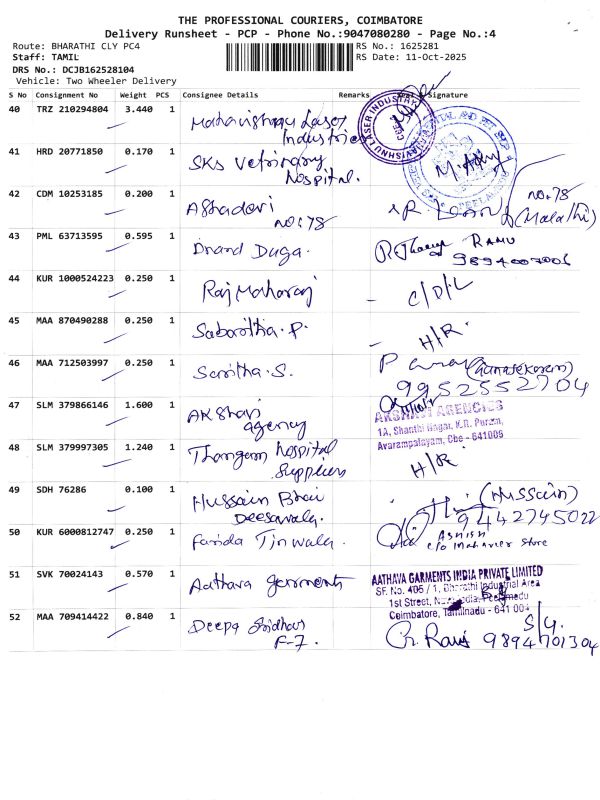 THE PROFESSIONAL COURIERS, COIMBATORE
Delivery Runsheet - PCP - Phone No.:9047080280 - Page No.:4
Route: BHARATHI CLY PC4
RS No.: 1625281
Staff: TAMIL
RS Date: 11-Oct-2025
DRS No.: DCJB162528104
Vehicle: Two Wheeler Delivery
S No Consignment No Weight PCS Consignee Details Remarks Signature
40 TRZ 210294804 3.440 1 Mahavishnu Laser
Industries
41 HRD 20771850 0.170 1 SKS Vetrinary
hospital.
42 CDM 10253185 0.200 1
no:78
no:78
(Malathi)
43 PML 63713595 0.595 1 Duga. RAMU
9894007006
44 KUR 1000524223 0.250 1 Raj Maharaj - C/D/L
45 MAA 870490288 0.250 1 - H/R.
46 MAA 712503997 0.250 1 Saritha.S.
9952552704
47 SLM 379866146 1.600 1 AKshari
agency
AKSHAYA AGENCIES
1A, Shanthi Nagar, K.R. Puram,
Avarampalayam, Cbe - 641006
48 SLM 379997305 1.240 1 Thangam hospital
Suppliers
H/R.
49 SDH 76286 0.100 1 Hussain Bhai
Deesawala.
(Hussain)
9442745022
50 KUR 6000812747 0.250 1 Farida Tinwala. ASHISH
c/o Mahaveer store
51 SVK 70024143 0.570 1 Aathava garments
AATHAVA GARMENTS INDIA PRIVATE LIMITED
SF. No. 405 / 1, Bharathi Industrial Area
1st Street, Peelamedu
Coimbatore, Tamilnadu - 641 004
52 MAA 709414422 0.840 1 Deepa Sridhar
F-7.
S/G.
9894701304